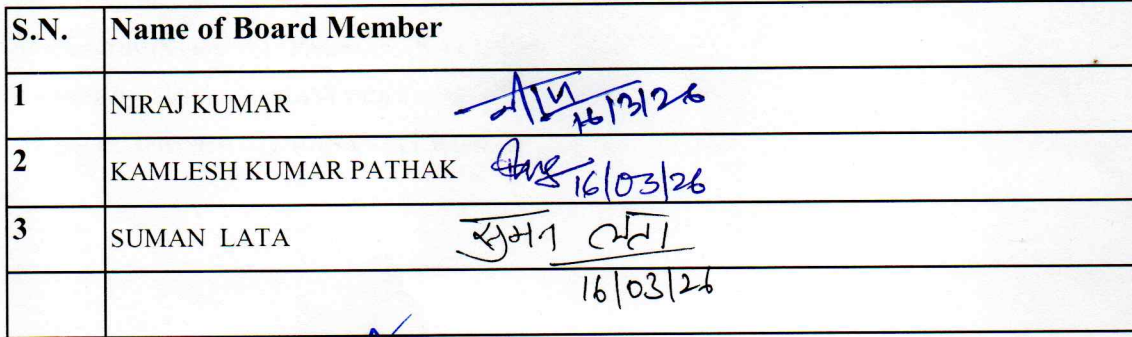 S.N. Name of Board Member
1 NIRAJ KUMAR 16/3/26
2 KAMLESH KUMAR PATHAK 16/03/26
3 SUMAN LATA सुमन लता
16/03/26